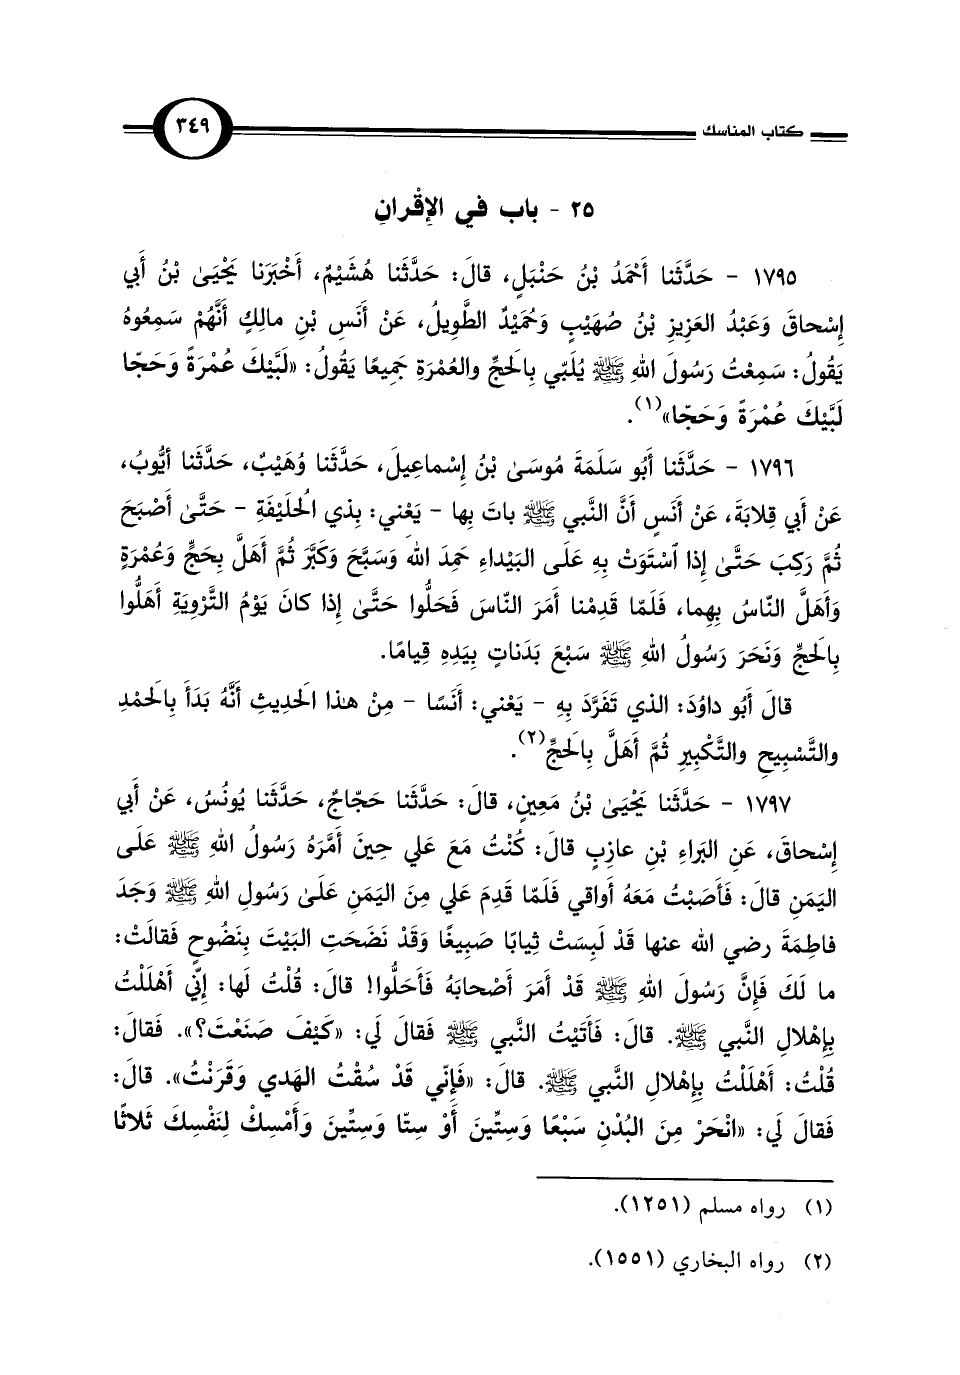 كتاب المناسك
٣٤٩
٢٥ - باب في الإقْرانِ
١٧٩٥ - حَدَّثَنا أَحْمَدُ بْنُ حَنْبَلٍ، قالَ: حَدَّثَنا هُشَيْمٌ، أَخْبَرَنا يَحْيَىٰ بْنُ أَبي
إِسْحاقَ وَعَبْدُ العَزِيزِ بْنُ صُهَيْبٍ وَحُمَيْدٌ الطَّوِيلُ، عَنْ أَنَسِ بْنِ مالِكٍ أَنَّهُمْ سَمِعُوهُ
يَقُولُ: سَمِعْتُ رَسُولَ اللهِ ﷺ يُلَبّي بِالحَجِّ والعُمْرَةِ جَمِيعًا يَقُولُ: «لَبَّيْكَ عُمْرَةً وَحَجّا
لَبَّيْكَ عُمْرَةً وَحَجّا»(١).
١٧٩٦ - حَدَّثَنا أَبُو سَلَمَةَ مُوسَىٰ بْنُ إِسْماعِيلَ، حَدَّثَنا وُهَيْبٌ، حَدَّثَنا أَيُّوبُ،
عَنْ أَبي قِلابَةَ، عَنْ أَنَسٍ أَنَّ النَّبي ﷺ باتَ بِها - يَعْني: بِذي الُحلَيْفَةِ - حَتَّىٰ أَصْبَحَ
ثُمَّ رَكِبَ حَتَّىٰ إِذا ٱسْتَوَتْ بِهِ عَلَى البَيْداءِ حَمِدَ اللهَ وَسَبَّحَ وَكَبَّرَ ثُمَّ أَهَلَّ بِحَجٍّ وَعُمْرَةٍ
وَأَهَلَّ النّاسُ بِهِما، فَلَمّا قَدِمْنا أَمَرَ النّاسَ فَحَلُّوا حَتَّىٰ إِذا كانَ يَوْمُ التَّرْوِيَةِ أَهَلُّوا
بِالحَجِّ وَنَحَرَ رَسُولُ اللهِ ﷺ سَبْعَ بَدَناتٍ بِيَدِهِ قِيامًا.
قالَ أَبُو داوُدَ: الذي تَفَرَّدَ بِهِ - يَعْني: أَنَسًا - مِنْ هٰذا الَحدِيثِ أَنَّهُ بَدَأَ بِالَحمْدِ
والتَّسْبِيحِ والتَّكْبِيرِ ثُمَّ أَهَلَّ بِالحَجِّ(٢).
١٧٩٧ - حَدَّثَنا يَحْيَىٰ بْنُ مَعِينٍ، قالَ: حَدَّثَنا حَجّاجٌ، حَدَّثَنا يُونُسُ، عَنْ أَبي
إِسْحاقَ، عَنِ البَراءِ بْنِ عازِبٍ قالَ: كُنْتُ مَعَ عَلي حِينَ أَمَّرَهُ رَسُولُ اللهِ ﷺ عَلَى
اليَمَنِ قالَ: فَأَصَبْتُ مَعَهُ أَواقي فَلَمّا قَدِمَ عَلي مِنَ اليَمَنِ عَلَىٰ رَسُولِ اللهِ ﷺ وَجَدَ
فاطِمَةَ رضي الله عنها قَدْ لَبِسَتْ ثِيابًا صَبِيغًا وَقَدْ نَضَحَتِ البَيْتَ بِنَضُوحٍ فَقالَتْ:
ما لَكَ فَإِنَّ رَسُولَ اللهِ ﷺ قَدْ أَمَرَ أَصْحابَهُ فَأَحَلُّوا! قالَ: قُلْتُ لَها: إِنّي أَهْلَلْتُ
بِإِهْلالِ النَّبي ﷺ. قالَ: فَأَتَيْتُ النَّبي ﷺ فَقالَ لي: «كَيْفَ صَنَعْتَ؟». فَقالَ:
قُلْتُ: أَهْلَلْتُ بِإِهْلالِ النَّبي ﷺ. قالَ: «فَإِنّي قَدْ سُقْتُ الهَدي وَقَرَنْتُ». قالَ:
فَقالَ لي: «انْحَرْ مِنَ البُدْنِ سَبْعًا وَسِتِّينَ أَوْ سِتّا وَسِتِّينَ وَأَمْسِكْ لِنَفْسِكَ ثَلاثًا
(١) رواه مسلم (١٢٥١).
(٢) رواه البخاري (١٥٥١).